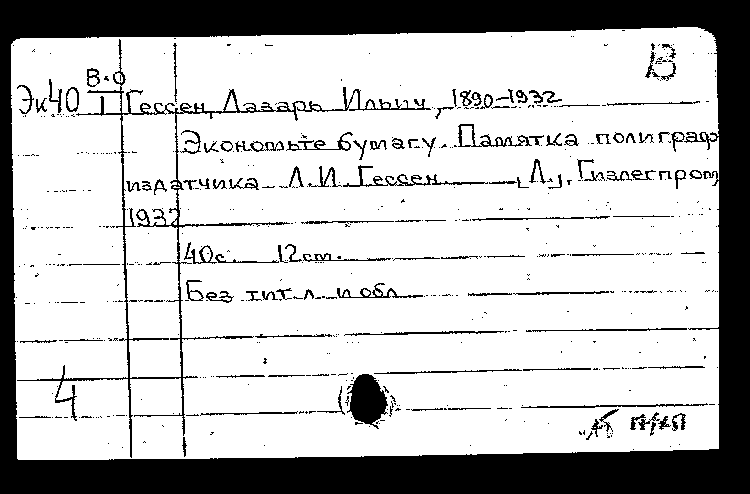 В
В-о
Эк40 I Гессен, Лазарь Ильич, 1890-1932
Экономьте бумагу. Памятка полиграф
издатчика Л.И. Гессен [Л.], Гизлегпром,
1932
40с. 12см.
Без тит. л. и обл.
4